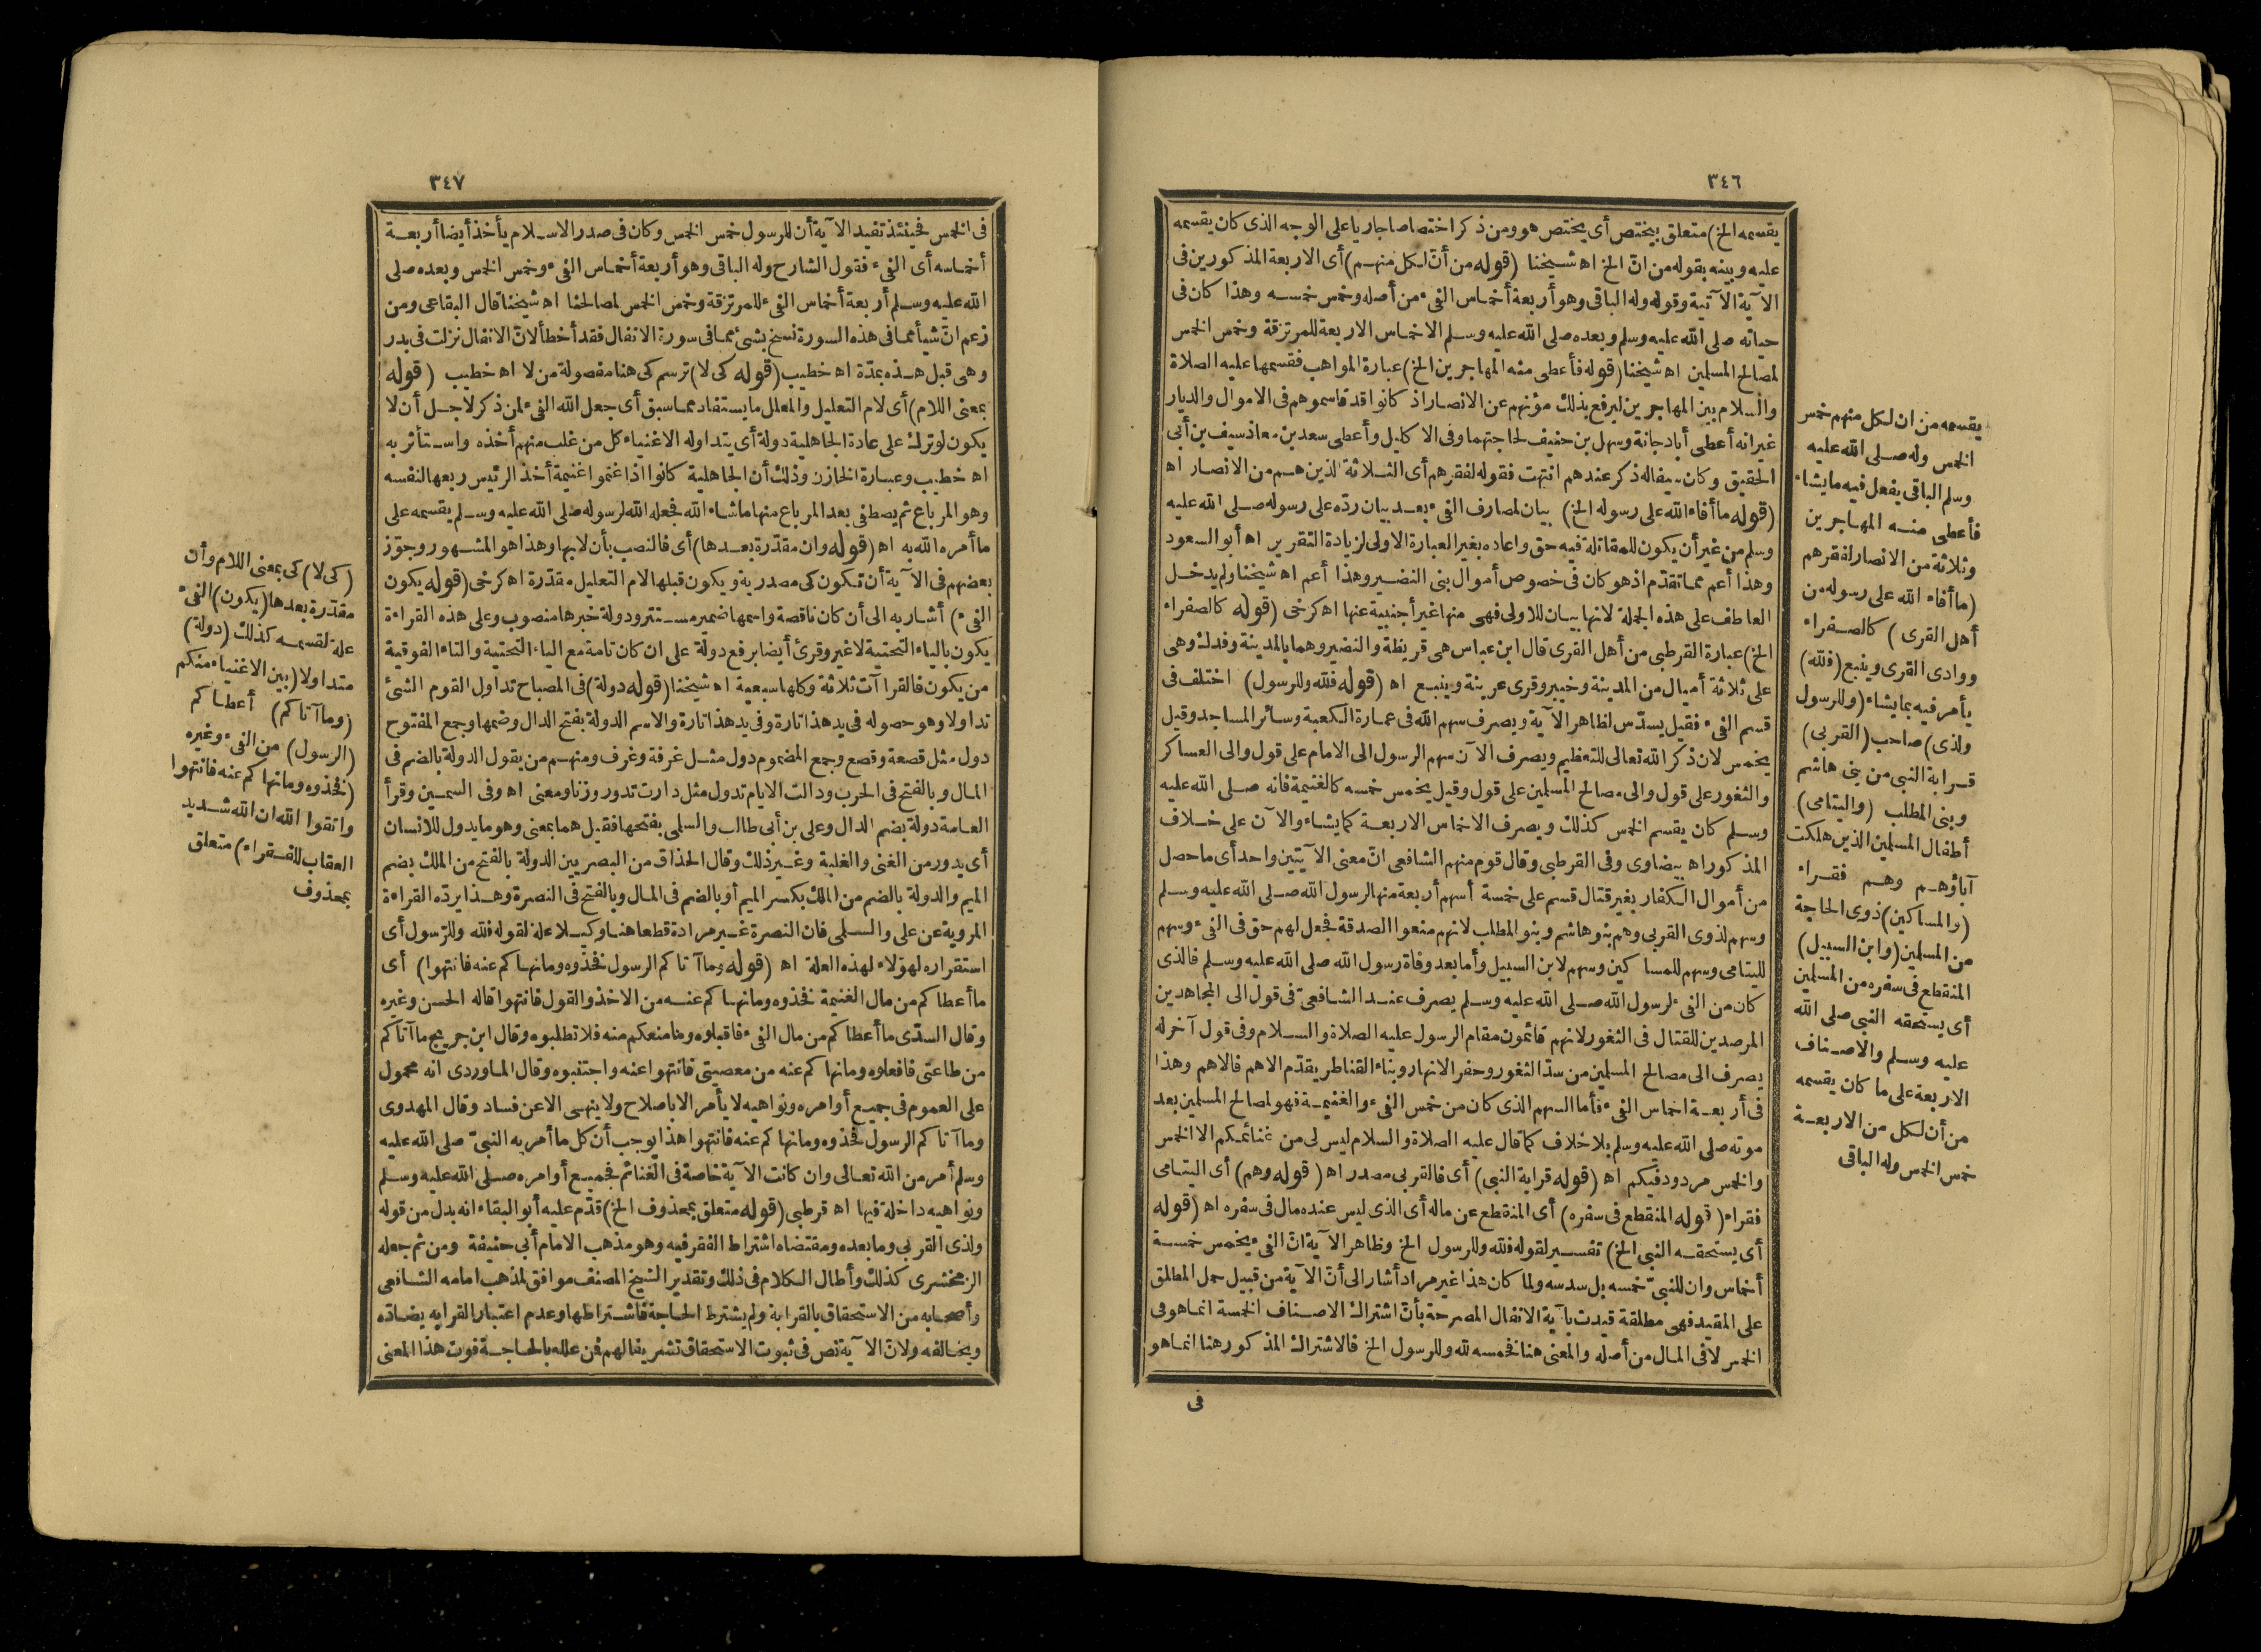 ٣٤٦
يقسمه الخ) متعلق بيختص أى يختص هو ومن ذكر اختصاصا جاريا على الوجه الذى كان يقسمه
عليه وبينه بقوله من ان الخ اه شيخنا (قوله من أن لكل منهم) أى الاربعة المذكورين فى
الآية الآتية وقوله وله الباقى وهو أربعة أخماس الفىء من أصله وخمس خمسه وهذا كان فى
حياته صلى الله عليه وسلم وبعده صلى الله عليه وسلم الاخماس الاربعة للمرتزقة وخمس الخمس
لمصالح المسلمين اه شيخنا (قوله فأعطى منه المهاجرين الخ) عبارة المواهب فقسمها عليه الصلاة
والسلام بين المهاجرين ليرفع بذلك مؤنهم عن الانصار اذ كانوا قد قاسموهم فى الاموال والديار
غير انه أعطى أبا دجانة وسهل بن حنيف لحاجتهما وفى الاكليل وأعطى سعد بن معاذ سيف بن أبى
الحقيق وكان سيفا له ذكر عندهم انتهت فقوله لفقرهم أى الثلاثة الذين هم من الانصار اه
(قوله ما أفاء الله على رسوله الخ) بيان لمصارف الفىء بعد بيان ردّه على رسوله صلى الله عليه
وسلم من غير أن يكون للمقاتلة فيه حق واعاده بغير العبارة الاولى لزيادة التقرير اه أبو السعود
وهذا أعم مما تقدّم اذ هو كان فى خصوص أموال بنى النضير وهذا أعم اه شيخنا ولم يدخل
العاطف على هذه الجملة لانها بيان للاولى فهى منها غير أجنبية عنها اه كرخى (قوله كالصفراء
الخ) عبارة القرطبى من أهل القرى قال ابن عباس هى قريظة والنضير وهما بالمدينة وفدك وهى
على ثلاثة أميال من المدينة وخيبر وقرى عرينة وينبع اه (قوله فلله وللرسول) اختلف فى
قسم الفىء فقيل يسدّس لظاهر الآية ويصرف سهم الله فى عمارة الكعبة وسائر المساجد وقيل
يخمس لان ذكر الله تعالى للتعظيم ويصرف الآن سهم الرسول الى الامام على قول والى العساكر
والثغور على قول والى مصالح المسلمين على قول وقيل يخمس خمسه كالغنيمة فانه صلى الله عليه
وسلم كان يقسم الخمس كذلك ويصرف الاخماس الاربعة كما يشاء والآن على خلاف
المذكور اه بيضاوى وفى القرطبى وقال قوم منهم الشافعى انّ معنى الآيتين واحد أى ما حصل
من أموال الكفار بغير قتال قسم على خمسة أسهم أربعة منها لرسول الله صلى الله عليه وسلم
وسهم لذوى القربى وهم بنو هاشم وبنو المطلب لانهم منعوا الصدقة فجعل لهم حق فى الفىء وسهم
لليتامى وسهم للمساكين وسهم لابن السبيل وأما بعد وفاة رسول الله صلى الله عليه وسلم فالذى
كان من الفىء لرسول الله صلى الله عليه وسلم يصرف عند الشافعىّ فى قول الى المجاهدين
المرصدين للقتال فى الثغور لانهم قائمون مقام الرسول عليه الصلاة والسلام وفى قول آخر له
يصرف الى مصالح المسلمين من سدّ الثغور وحفر الانهار وبناء القناطر يقدّم الاهم فالاهم وهذا
فى أربعة اخماس الفىء فأما السهم الذى كان من خمس الفىء والغنيمة فهو لمصالح المسلمين بعد
موته صلى الله عليه وسلم بلا خلاف كما قال عليه الصلاة والسلام ليس لى من غنائمكم الا الخمس
والخمس مردود فيكم اه (قوله قرابة النبى) أى فالقربى مصدر اه (قوله وهم) أى اليتامى
فقراء (قوله المنقطع فى سفره) أى المنقطع عن ماله أى الذى ليس عنده مال فى سفره اه (قوله
أى يستحقه النبى الخ) تفسير لقوله فلله وللرسول الخ وظاهر الآية انّ الفىء يخمس خمسة
أخماس وان للنبىّ خمسه بل سدسه ولما كان هذا غير مراد أشار الى أنّ الآية من قبيل حمل المطلق
على المقيد فهى مطلقة قيدت بآية الانفال المصرحة بأنّ اشتراك الاصناف الخمسة انما هو فى
الخمس لا فى المال من أصله والمعنى هنا فخمسه لله وللرسول الخ فالاشتراك المذكور هنا انما هو
فى
يقسمه من ان لكل منهم خمس
الخمس وله صلى الله عليه
وسلم الباقى يفعل فيه ما يشاء
فأعطى منه المهاجرين
وثلاثة من الانصار لفقرهم
(ما أفاء الله على رسوله من
أهل القرى) كالصفراء
ووادى القرى وينبع (فلله)
يأمر فيه بما يشاء (وللرسول
ولذى) صاحب (القربى)
قرابة النبى من بنى هاشم
وبنى المطلب (واليتامى)
أطفال المسلمين الذين هلكت
آباؤهم وهم فقراء
(والمساكين) ذوى الحاجة
من المسلمين (وابن السبيل)
المنقطع فى سفره من المسلمين
أى يستحقه النبى صلى الله
عليه وسلم والاصناف
الاربعة على ما كان يقسمه
من أن لكل من الاربعة
خمس الخمس وله الباقى
٣٤٧
فى الخمس فحينئذ تفيد الآية أن للرسول خمس الخمس وكان فى صدر الاسلام يأخذ أيضا أربعة
أخماسه أى الفىء فقول الشارح وله الباقى وهو أربعة أخماس الفىء وخمس الخمس وبعده صلى
الله عليه وسلم أربعة أخماس الفىء للمرتزقة وخمس الخمس لمصالحنا اه شيخنا قال البقاعى ومن
زعم انّ شيأ مما فى هذه السورة نسخ بشئ مما فى سورة الانفال فقد أخطأ لانّ الانفال نزلت فى بدر
وهى قبل هذه بمدّة اه خطيب (قوله كى لا) ترسم كى هنا مفصولة من لا اه خطيب (قوله
بمعنى اللام) أى لام التعليل والمعلل ما يستفاد مما سبق أى جعل الله الفىء لمن ذكر لاجل أن لا
يكون لو ترك على عادة الجاهلية دولة أى يتداوله الاغنياء كل من غلب منهم أخذه واستأثر به
اه خطيب وعبارة الخازن وذلك أن الجاهلية كانوا اذا غنموا غنيمة أخذ الرئيس ربعها لنفسه
وهو المرباع ثم يصطفى بعد المرباع منها ما شاء الله فجعله الله لرسوله صلى الله عليه وسلم يقسمه على
ما أمره الله به اه (قوله وان مقدّرة بعدها) أى فالنصب بأن لا بها وهذا هو المشهور وجوّز
بعضهم فى الآية أن تكون كى مصدرية ويكون قبلها لام التعليل مقدّرة اه كرخى (قوله يكون
الفىء) أشار به الى أن كان ناقصة واسمها ضمير مستتر ودولة خبرها منصوب وعلى هذه القراءة
يكون بالياء التحتية لا غير وقرئ أيضا برفع دولة على ان كان تامة مع الياء التحتية والتاء الفوقية
من يكون فالقرا آت ثلاثة وكلها سبعية اه شيخنا (قوله دولة) فى المصباح تداول القوم الشئ
تداولا وهو حصوله فى يد هذا تارة وفى يد هذا تارة والاسم الدولة بفتح الدال وضمها وجمع المفتوح
دول مثل قصعة وقصع وجمع المضموم دول مثل غرفة وغرف ومنهم من يقول الدولة بالضم فى
المال وبالفتح فى الحرب ودالت الايام تدول مثل دارت تدور وزنا ومعنى اه وفى السمين وقرأ
العامة دولة بضم الدال وعلى بن أبى طالب والسلمى بفتحها فقيل هما بمعنى وهو ما يدول للانسان
أى يدور من الغنى والغلبة وغير ذلك وقال الحذاق من البصريين الدولة بالفتح من الملك بضم
الميم والدولة بالضم من الملك بكسر الميم أو بالضم فى المال وبالفتح فى النصرة وهذا يردّه القراءة
المروية عن على والسلمى فان النصرة غير مرادة قطعا هنا وكيلا علة لقوله فلله وللرسول أى
استقراره لهؤلاء لهذه العلة اه (قوله وما آتاكم الرسول فخذوه وما نهاكم عنه فانتهوا) أى
ما أعطاكم من مال الغنيمة فخذوه وما نهاكم عنه من الاخذ والقول فانتهوا قاله الحسن وغيره
وقال السدّى ما أعطاكم من مال الفىء فاقبلوه وما منعكم منه فلا تطلبوه وقال ابن جريج ما آتاكم
من طاعتى فافعلوه وما نهاكم عنه من معصيتى فانتهوا عنه واجتنبوه وقال الماوردى انه محمول
على العموم فى جميع أوامره ونواهيه لا يأمر الا باصلاح ولا ينهى الا عن فساد وقال المهدوى
وما آتاكم الرسول فخذوه وما نهاكم عنه فانتهوا هذا يوجب أن كل ما أمر به النبىّ صلى الله عليه
وسلم أمر من الله تعالى وان كانت الآية خاصة فى الغنائم فجميع أوامره صلى الله عليه وسلم
ونواهيه داخلة فيها اه قرطبى (قوله متعلق بمحذوف الخ) قدّم عليه أبو البقاء انه بدل من قوله
ولذى القربى وما بعده ومقتضاه اشتراط الفقر فيه وهو مذهب الامام أبى حنيفة ومن ثم جعله
الزمخشرى كذلك وأطال الكلام فى ذلك وتقدير الشيخ المصنف موافق لمذهب امامه الشافعى
وأصحابه من الاستحقاق بالقرابة ولم يشترط الحاجة فاشتراطها وعدم اعتبار القرابه يضادّه
ويخالفه ولانّ الآية نص فى ثبوت الاستحقاق تشريفا لهم فمن علله بالحاجة فوت هذا المعنى
(كى لا) كى بمعنى اللام وأن
مقدّرة بعدها (يكون) الفىء
علة لقسمه كذلك (دولة)
متداولا (بين الاغنياء منكم
(وما آتاكم) أعطاكم
(الرسول) من الفىء وغيره
(فخذوه وما نهاكم عنه فانتهوا
واتقوا الله ان الله شديد
العقاب للفقراء) متعلق
بمحذوف